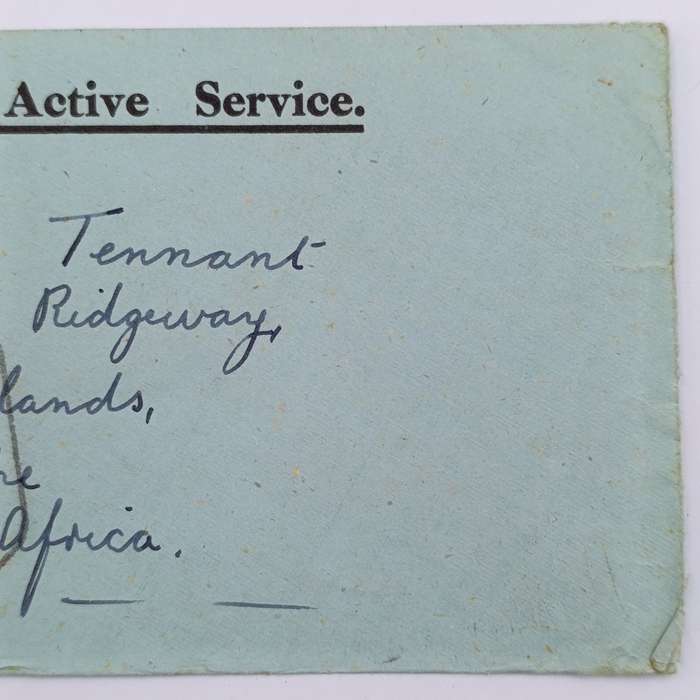 Active Service.
Tennant
Ridgeway,
lands,
he
Africa.